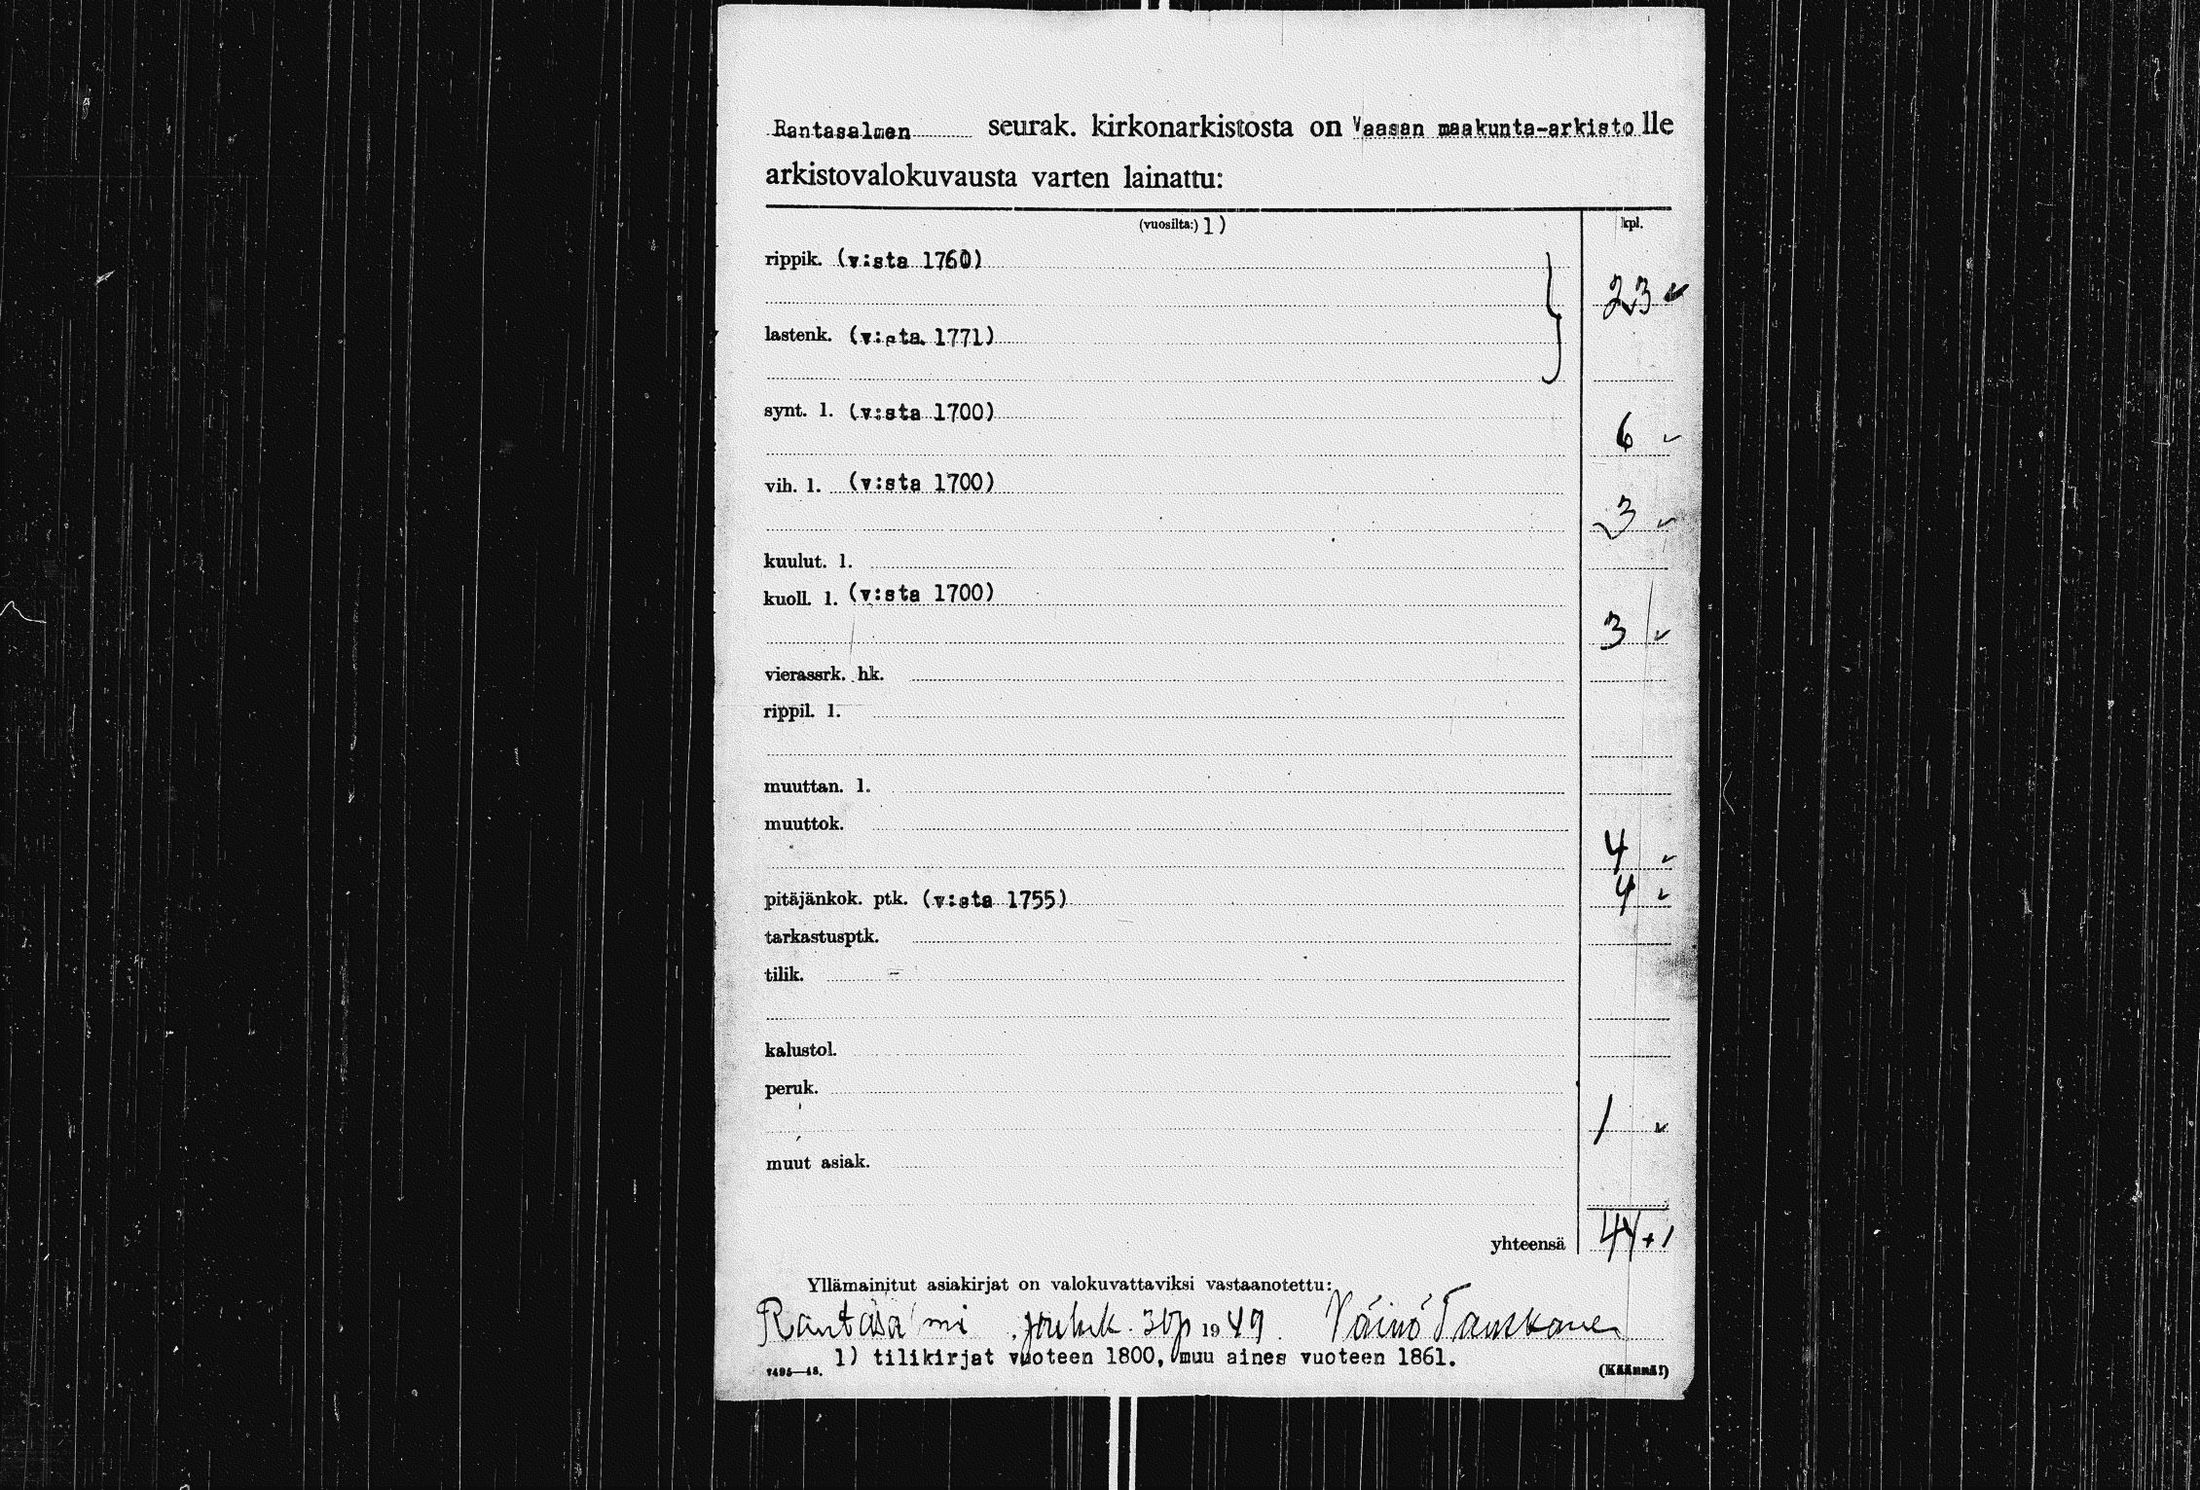 Rantasalmen seurak. kirkonarkistosta on Vaasan maakunta-arkisto lle
arkistovalokuvausta varten lainattu:
(vuosilta:) 1) kpl.
rippik. (v:sta 1760)
23
lastenk. (v:sta 1771)
synt. l. (v:sta 1700)
6
vih. l. (v:sta 1700)
3
kuulut. l.
kuoll. l. (v:sta 1700)
3
vierassrk. hk.
rippil. l.
muuttan. l.
muuttok.
4
pitäjänkok. ptk. (v:sta 1755) 4
tarkastusptk.
tilik.
kalustol.
peruk.
1
muut asiak.
yhteensä 44+1
Yllämainitut asiakirjat on valokuvattaviksi vastaanotettu:
Rantasalmi jouluk. 30p 1949. Väinö Tanskanen
1) tilikirjat vuoteen 1800, muu aines vuoteen 1861.
7495—48. (Käännä!)